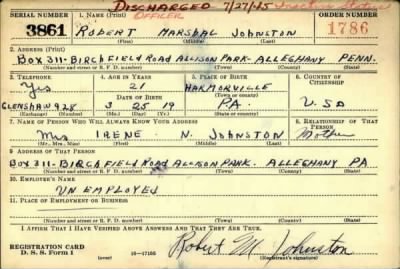 DISCHARGED 7/27/45 Inactive Status
OFFICER
SERIAL NUMBER 1. NAME (Print) ORDER NUMBER
3861 ROBERT MARSHAL JOHNSTON 1786
(First) (Middle) (Last)
2. ADDRESS (Print)
BOX 311-BIRCHFIELD ROAD ALLISON PARK-ALLEGHANY PENN.
(Number and street or R. F. D. number) (Town) (County) (State)
3. TELEPHONE 4. AGE IN YEARS 5. PLACE OF BIRTH 6. COUNTRY OF CITIZENSHIP
Yes 21 HARMORVILLE
DATE OF BIRTH (Town or county)
GLENSHAW 928 3 25 19 PA. U.S.A
(Exchange) (Number) (Mo.) (Day) (Yr.) (State or country)
7. NAME OF PERSON WHO WILL ALWAYS KNOW YOUR ADDRESS 8. RELATIONSHIP OF THAT PERSON
Mrs IRENE N. JOHNSTON Mother
(Mr., Mrs., Miss) (First) (Middle) (Last)
9. ADDRESS OF THAT PERSON
BOX 311-BIRCHFIELD ROAD ALLISON PARK. ALLEGHANY PA
(Number and street or R. F. D. number) (Town) (County) (State)
10. EMPLOYER'S NAME
UNEMPLOYED
11. PLACE OF EMPLOYMENT OR BUSINESS
(Number and street or R. F. D. number) (Town) (County) (State)
I AFFIRM THAT I HAVE VERIFIED ABOVE ANSWERS AND THAT THEY ARE TRUE.
REGISTRATION CARD
D. S. S. Form 1 16-17105 Robert M. Johnston
(Registrant's signature)